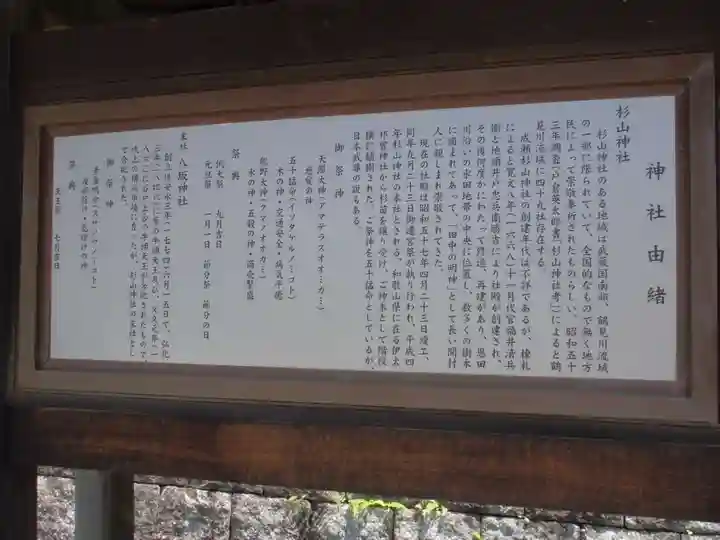 神社由緒
杉山神社
杉山神社のある地域は武蔵国南部、鶴見川流域
の一部に限られていて、全国的なもので無く地方
民によって崇敬奉祀されたものらしい。昭和五十
三年調査(戸倉英太郎書「杉山神社考」)によると鶴
見川流域に四十九社存在する。
成瀬杉山神社の創建年代は不詳であるが、棟札
によると寛文八年(一六六八)十一月代官福井清兵
衛と地頭井戸忠兵衛勝吉により社殿が創建され、
その後何度かにわたって修造、再建があり、恩田
川沿いの水田地帯の中央に位置し、数多くの樹木
に囲まれてあって、「田中の明神」として長い間村
人に親しまれ崇敬されてきた。
現在の社殿は昭和五十七年四月二十三日竣工、
同年九月二十三日御遷宮祭が執り行われ、平成四
年杉山神社の本社とされる、和歌山県に在る伊太
祁曽神社から杉苗を譲り受け、ご神木として階段
横に植樹された。ご祭神を五十猛命としているが、
日本武尊の説もある
御祭神
天照大神(アマテラスオオミカミ)
慈愛の神
五十猛命(イソタケルノミコト)
木の神・交通安全・病気平癒
熊野大神(クマノオオカミ)
木の神・五穀の神・商売繁盛
祭典
例大祭 九月吉日
元旦祭 一月一日 節分祭 節分の日
末社 八坂神社
創立は安永三年(一七七四)六月十五日で、弘化
三年
て合祀された。
御祭神
素盞嗚命(スサノオノミコト)
祭典
天王祭 七月吉日